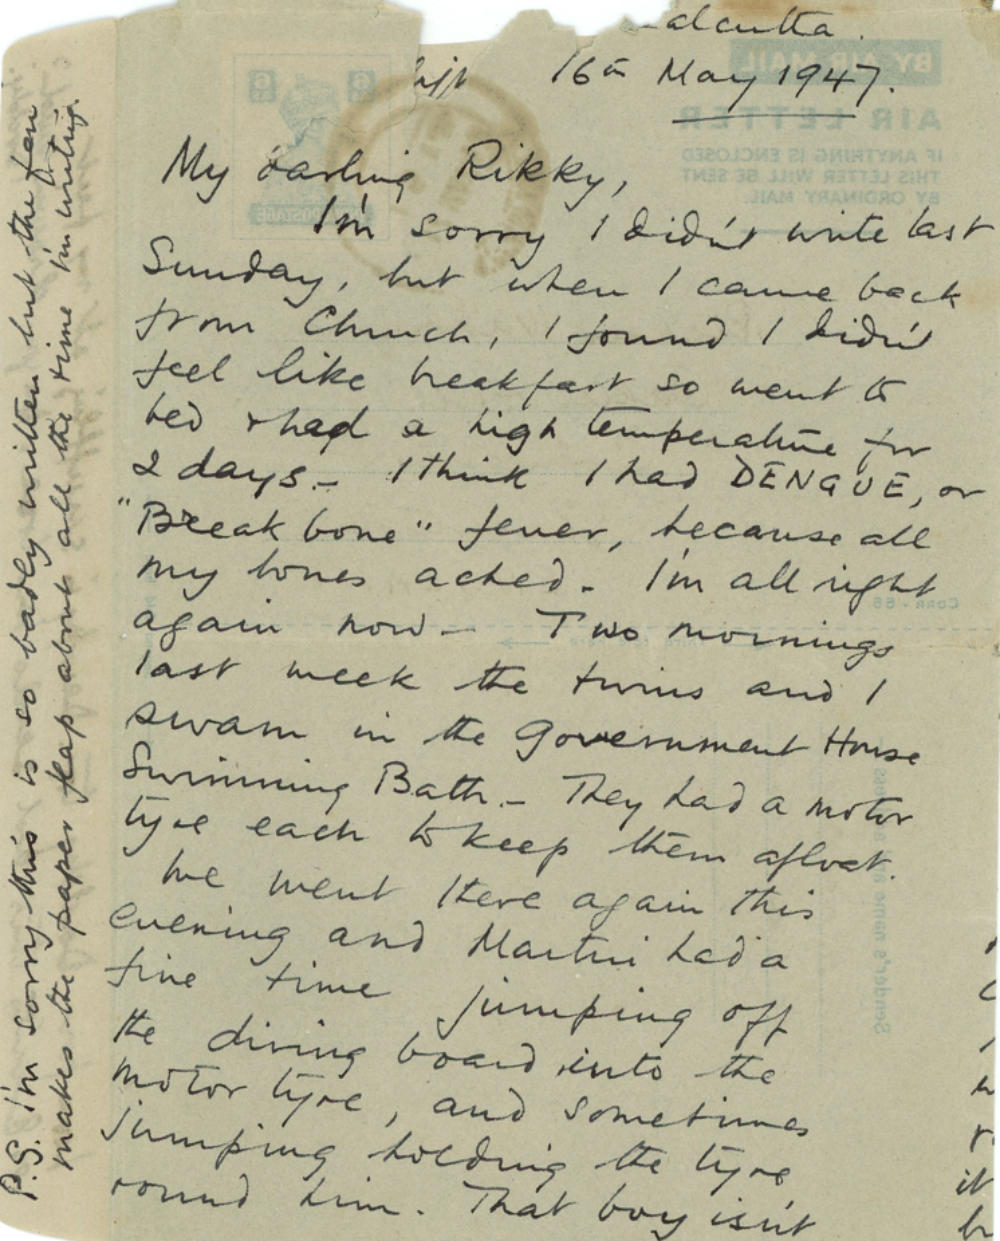 alcutta.
16th May 1947.
My darling Rikky,
I'm sorry I didn't write last
Sunday, but when I came back
from Church, I found I didn't
feel like breakfast so went to
bed & had a high temperature for
2 days – I think I had DENGUE, or
"Breakbone" fever, because all
my bones ached – I'm all right
again now – Two mornings
last week the twins and I
swam in the Government House
Swimming Bath – They had a motor
tyre each to keep them afloat.
We went there again this
evening and Martin had a
fine time jumping off
the diving board into the
motor tyre, and sometimes
jumping holding the tyre
round him. That boy isn't
P.S. I'm sorry this is so badly written but the fan
makes the paper flap about all the time I'm writing.
BY AIR MAIL
AIR LETTER
IF ANYTHING IS ENCLOSED
THIS LETTER WILL BE SENT
BY ORDINARY MAIL.
POSTAGE
Sender's name and address